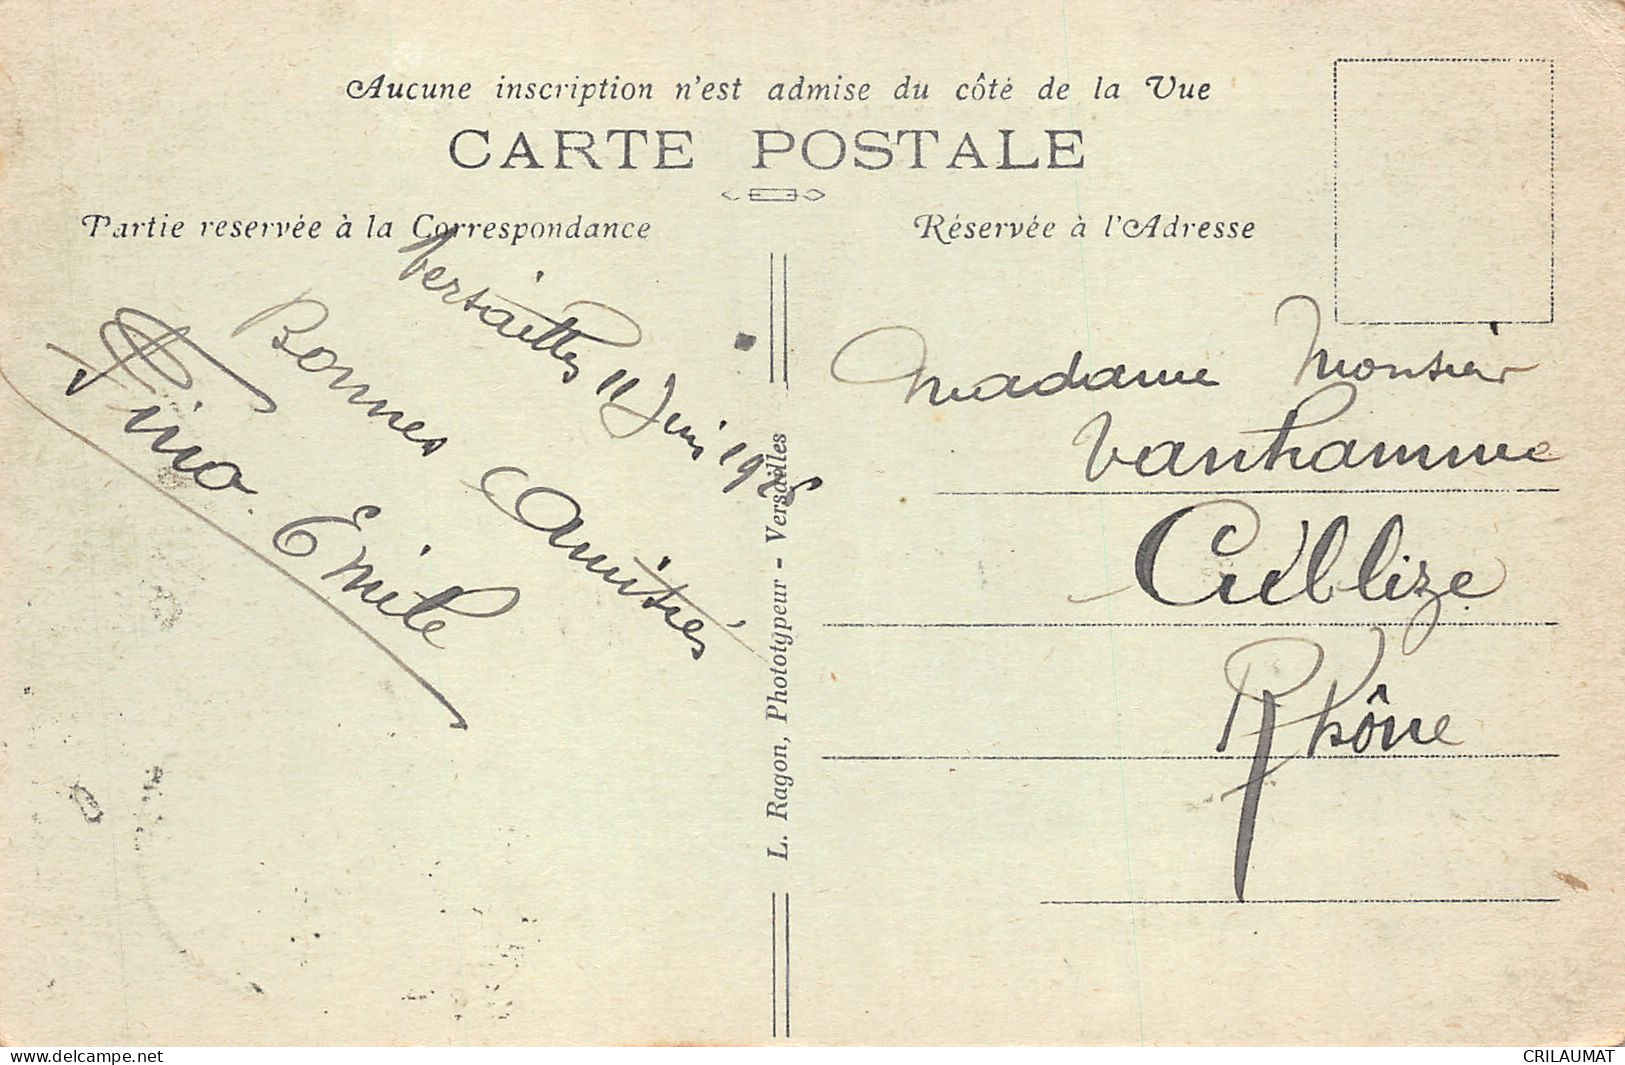 Aucune inscription n'est admise du côté de la Vue
CARTE POSTALE
Partie reservée à la Correspondance
Réservée à l'Adresse
Versailles 11 Juin 19
Bonnes Amitiés
Fina. Emile
L. Ragon, Phototypeur - Versailles
Madame Monsieur
Vanhamme
Cublize
Rhône
www.delcampe.net
CRILAUMAT